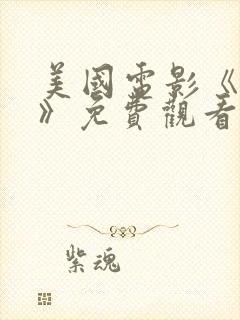 美國電影《
》免費觀看
紫魂